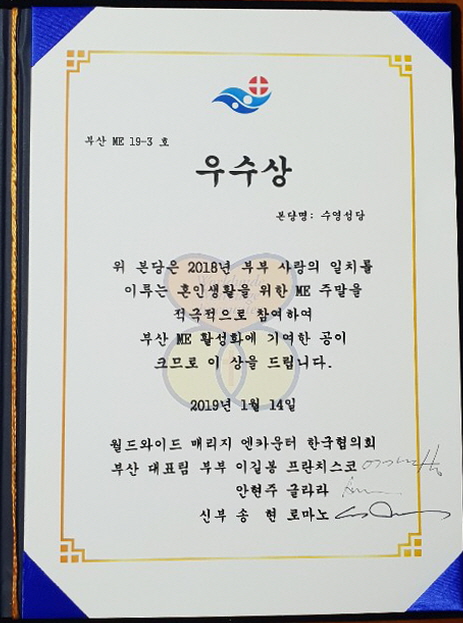 부산 ME 19-3 호
우수상
본당명: 수영성당
위 본당은 2018년 부부 사랑의 일치를
이루는 혼인생활을 위한 ME 주말을
적극적으로 참여하여
부산 ME 활성화에 기여한 공이
크므로 이 상을 드립니다.
2019년 1월 14일
월드와이드 매리지 엔카운터 한국협의회
부산 대표팀 부부 이길봉 프란치스코
안현주 글라라
신부 송 현 로마노